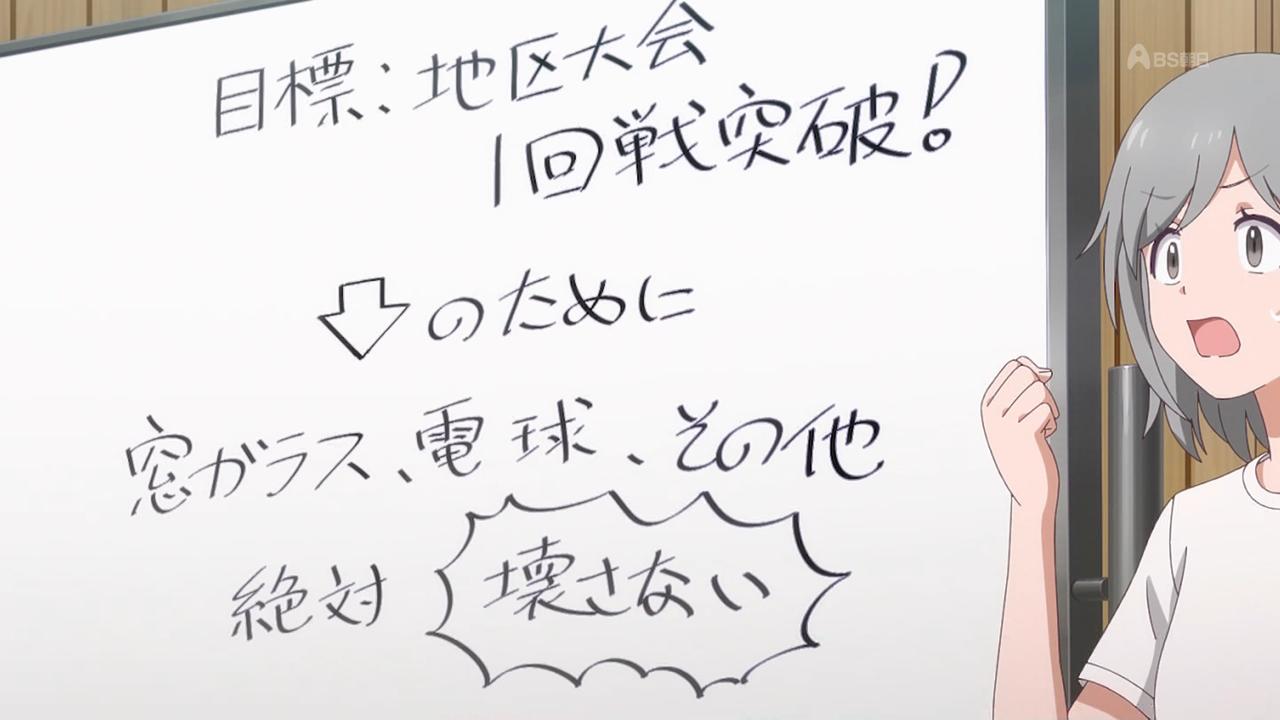 目標:地区大会
1回戦突破!
BS朝日
⇩のために
窓ガラス、電球、その他
絶対 壊さない